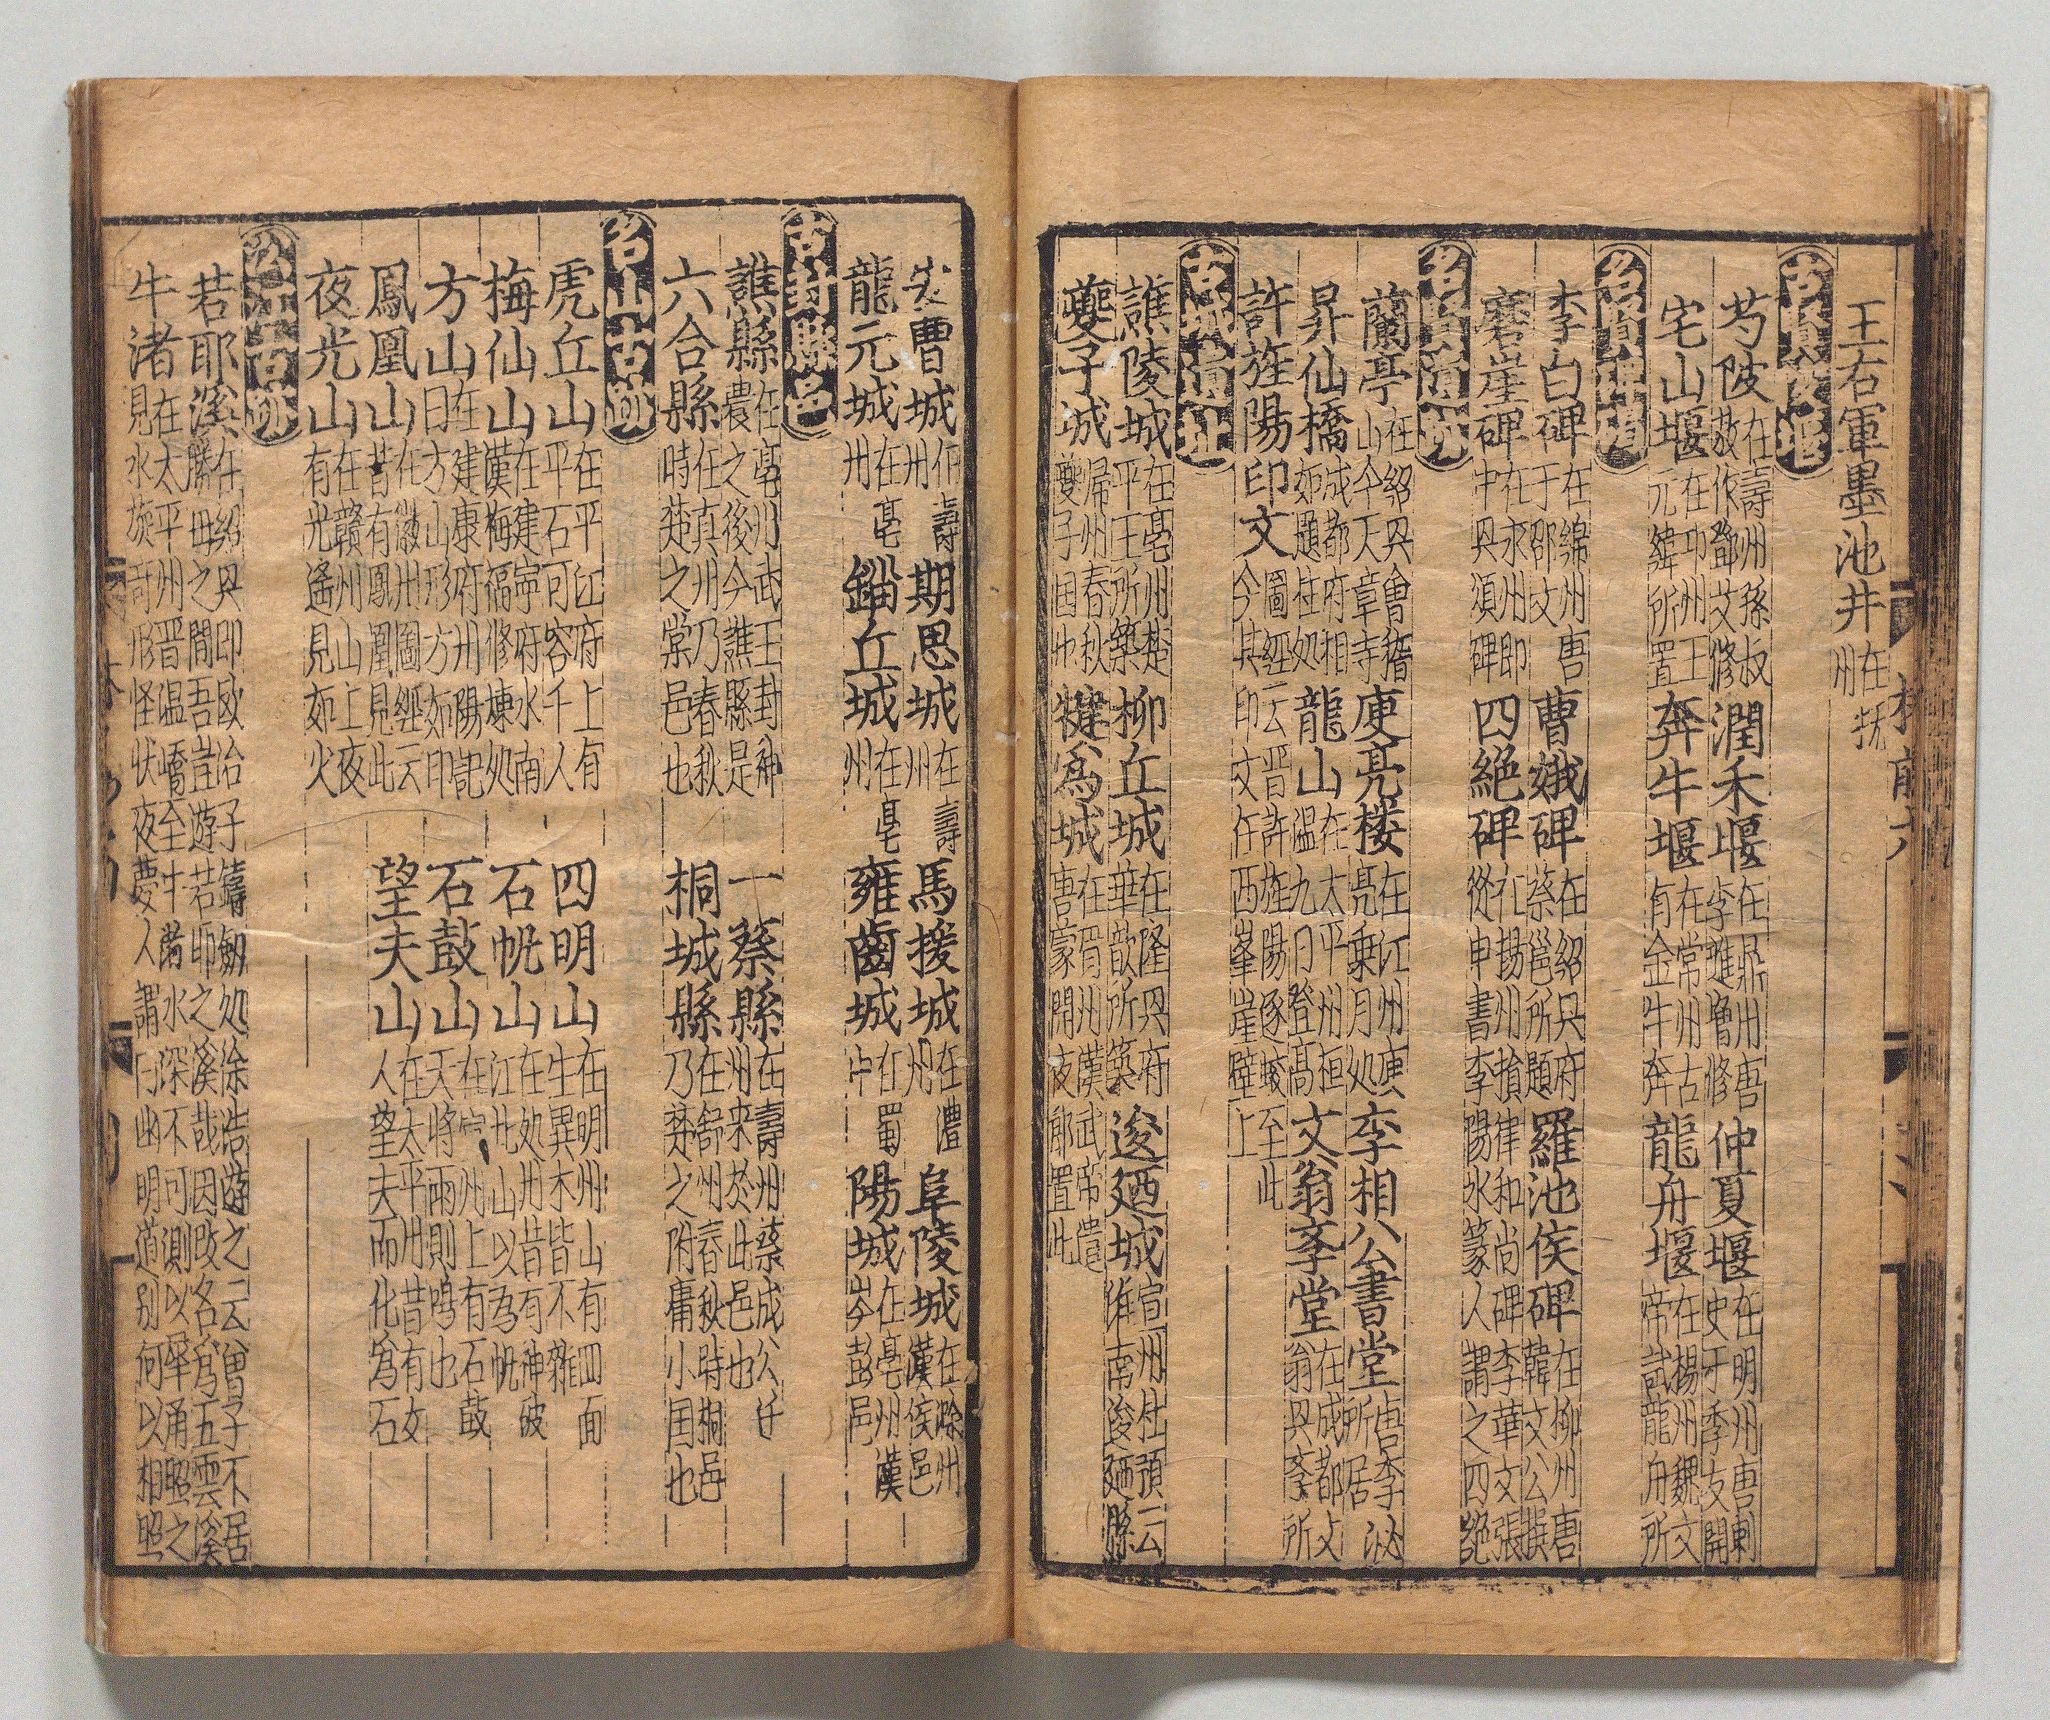 王右軍墨池井在撫州
芍陂在壽州孫叔敖作鄧艾修 潤禾堰在鼎州唐李璡增修 仲夏堰在明州唐刺史于季友開
宅山堰在邛州王元緯所置 奔牛堰在常州古有金牛奔 龍舟堰在楊州魏文帝試龍舟所
名賢碑
李白碑在綿州唐于邵文 曹娥碑在紹興府蔡邕所題 羅池侯碑在柳州唐韓文公撰
磨崖碑在永州即中興頌碑 四絕碑在揚州律和尚碑李華文張從申書李陽冰篆人謂之四絕
名賢遺
蘭亭在紹興會稽山今天章寺 庾亮楼在江州庾亮乘月処 李相公書堂唐李泌所居
昇仙橋成都府相如題柱処 龍山在太平州桓温九日登高 文翁孝堂在成都文翁興孝所
許旌陽印文圖經云晉許旌陽逐蛟至此今其印文在西峯崖壁上
古城遺址
譙陵城在亳州楚平王所築 柳丘城在隆興府華歆所築 逡遒城宣州杜預云淮南逡遒縣
夔子城歸州春秋夔子国也 犍為城在眉州漢武帝遣唐蒙開夜郎置此
曹城壽州 期思城在壽州 馬援城在澧州 阜陵城在滁州漢侯邑
龍元城在亳州 錙丘城在亳州 雍齒城在蜀中 陽城在亳州漢岑彭邑
古封縣邑
譙縣在亳州武王封神農之後今譙縣是 一蔡縣在壽州蔡成公迁州来於此邑也
六合縣在真州乃春秋時楚之棠邑也 桐城縣在舒州春秋時桐邑乃楚之附庸小国也
名山古跡
虎丘山在平江府上有平石可容千人 四明山在明州山有四面生異木皆不雜
梅仙山在建寧府水南漢梅福修煉処 石帆山在処州昔有神破江北山以為帆
方山在建康府州陽記曰方山形方如印 石鼓山州上有石鼓天將雨則鳴也
鳳凰山在徽州圖經云昔有鳳凰見此 望夫山在太平州昔有女人望夫而化為石
夜光山在贛州山上夜有光遙見如火
名江古跡
若耶溪在紹興即歐冶子鑄劒処徐浩遊之云曾子不居勝母之閭吾豈遊若耶之溪哉因改名為五雲溪
牛渚在太平州晉温嶠至牛渚水深不可測以犀角照之見水族奇形怪状夜夢人謂曰幽明道别何以相照